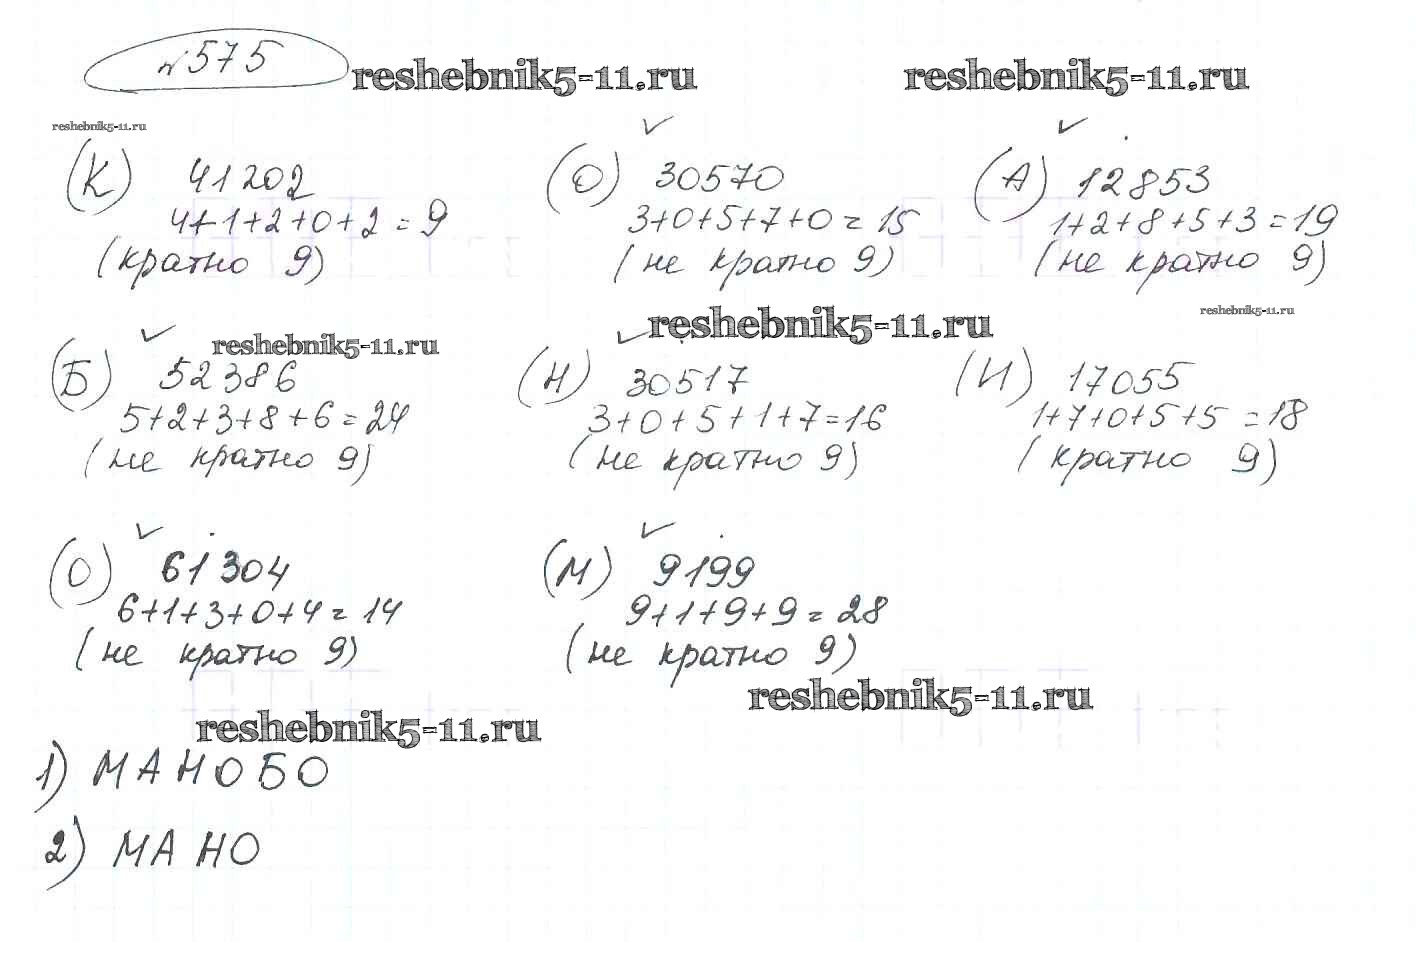 №575
reshebnik5-11.ru reshebnik5-11.ru
reshebnik5-11.ru
(К) 41202 (О) 30570 (А) 12853
4+1+2+0+2=9 3+0+5+7+0=15 1+2+8+5+3=19
(кратно 9) (не кратно 9) (не кратно 9)
reshebnik5-11.ru reshebnik5-11.ru
reshebnik5-11.ru
(Б) 52386 (Н) 30517 (И) 17055
5+2+3+8+6=24 3+0+5+1+7=16 1+7+0+5+5=18
(не кратно 9) (не кратно 9) (кратно 9)
(О) 61304 (М) 9199
6+1+3+0+4=14 9+1+9+9=28
(не кратно 9) (не кратно 9)
reshebnik5-11.ru
reshebnik5-11.ru
1) МАНОБО
2) МАНО